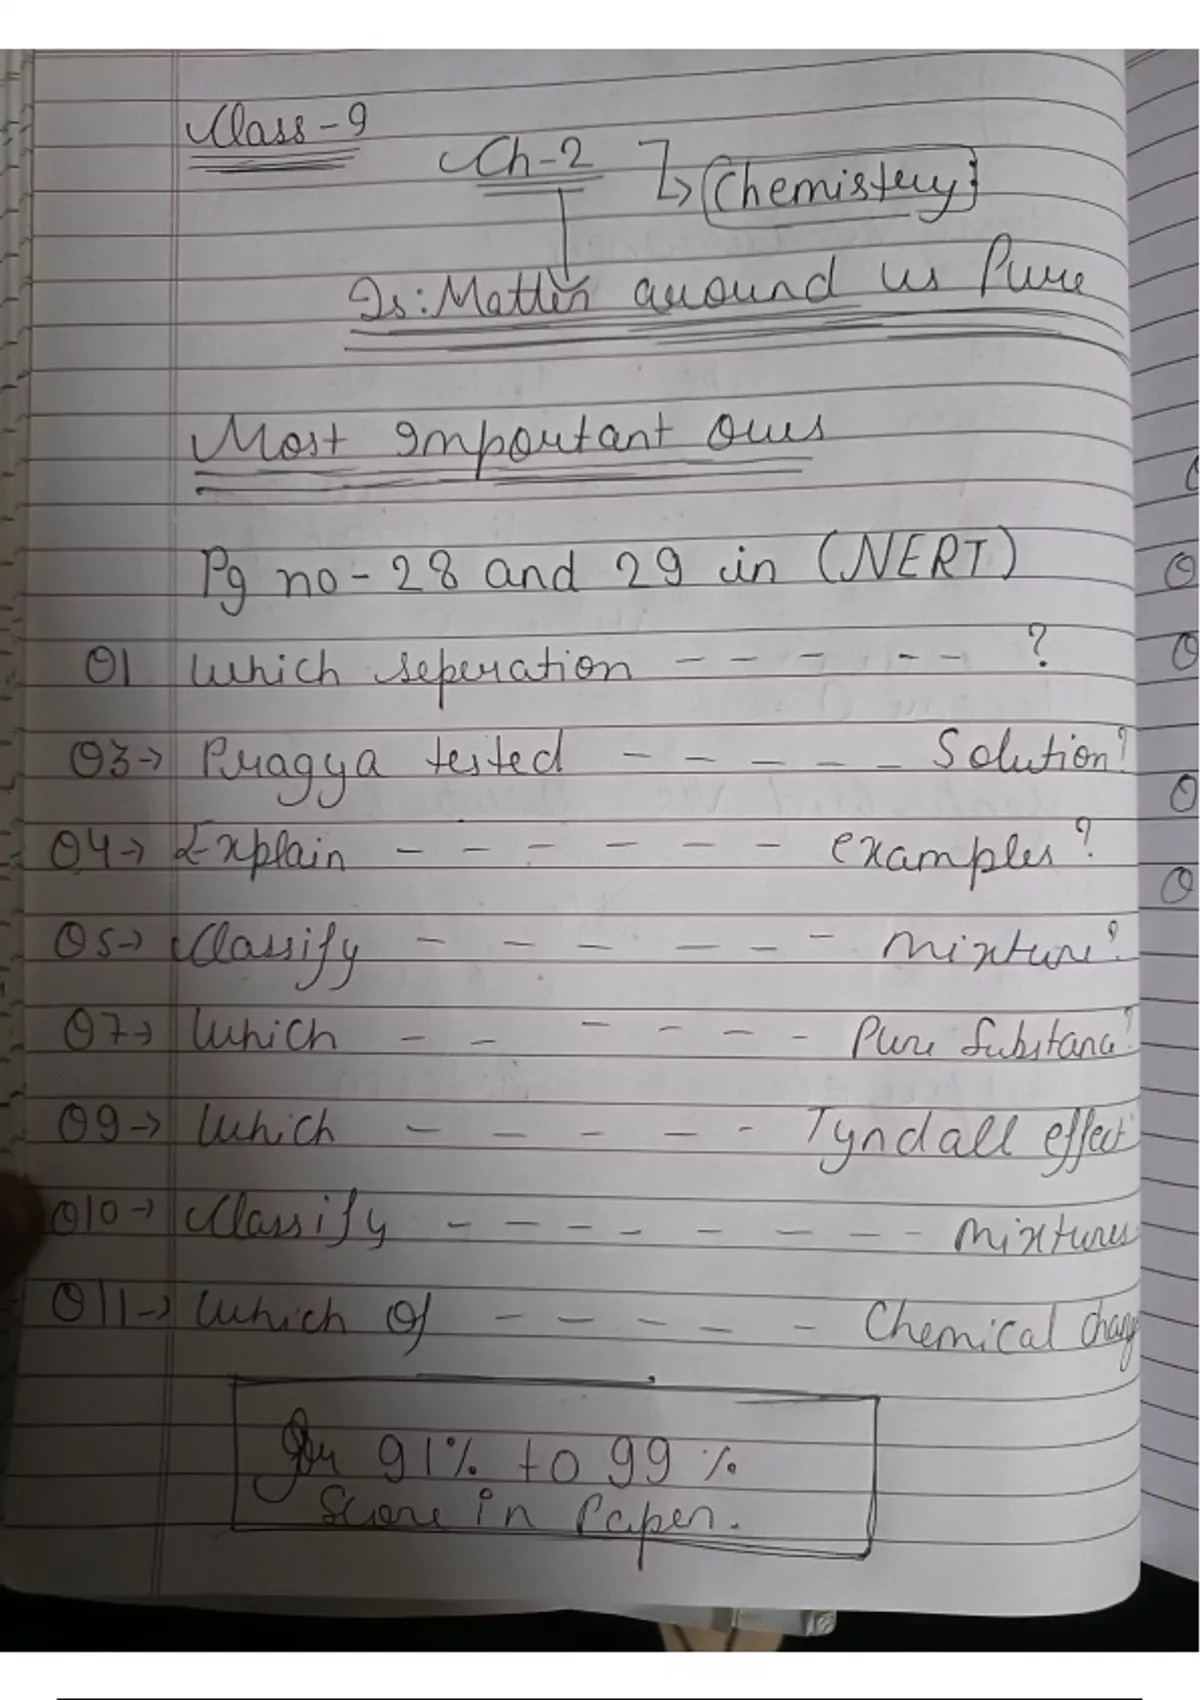 Class-9
Ch-2 ↳ Chemistry:
Is: Matter around us Pure
Most Important Ques
Pg no-28 and 29 in (NERT)
Q1 Which seperation - - - - - ?
Q3→ Pragya tested - - - - - Solution?
Q4→ Explain - - - - - - examples?
Q5→ Classify - - - - - - mixture?
Q7→ Which - - - - - - Pure Substance?
Q9→ Which - - - - - Tyndall effect
Q10→ Classify - - - - - - - - mixtures
Q11→ Which of - - - - - Chemical change
For 91% to 99%
Score in Paper.